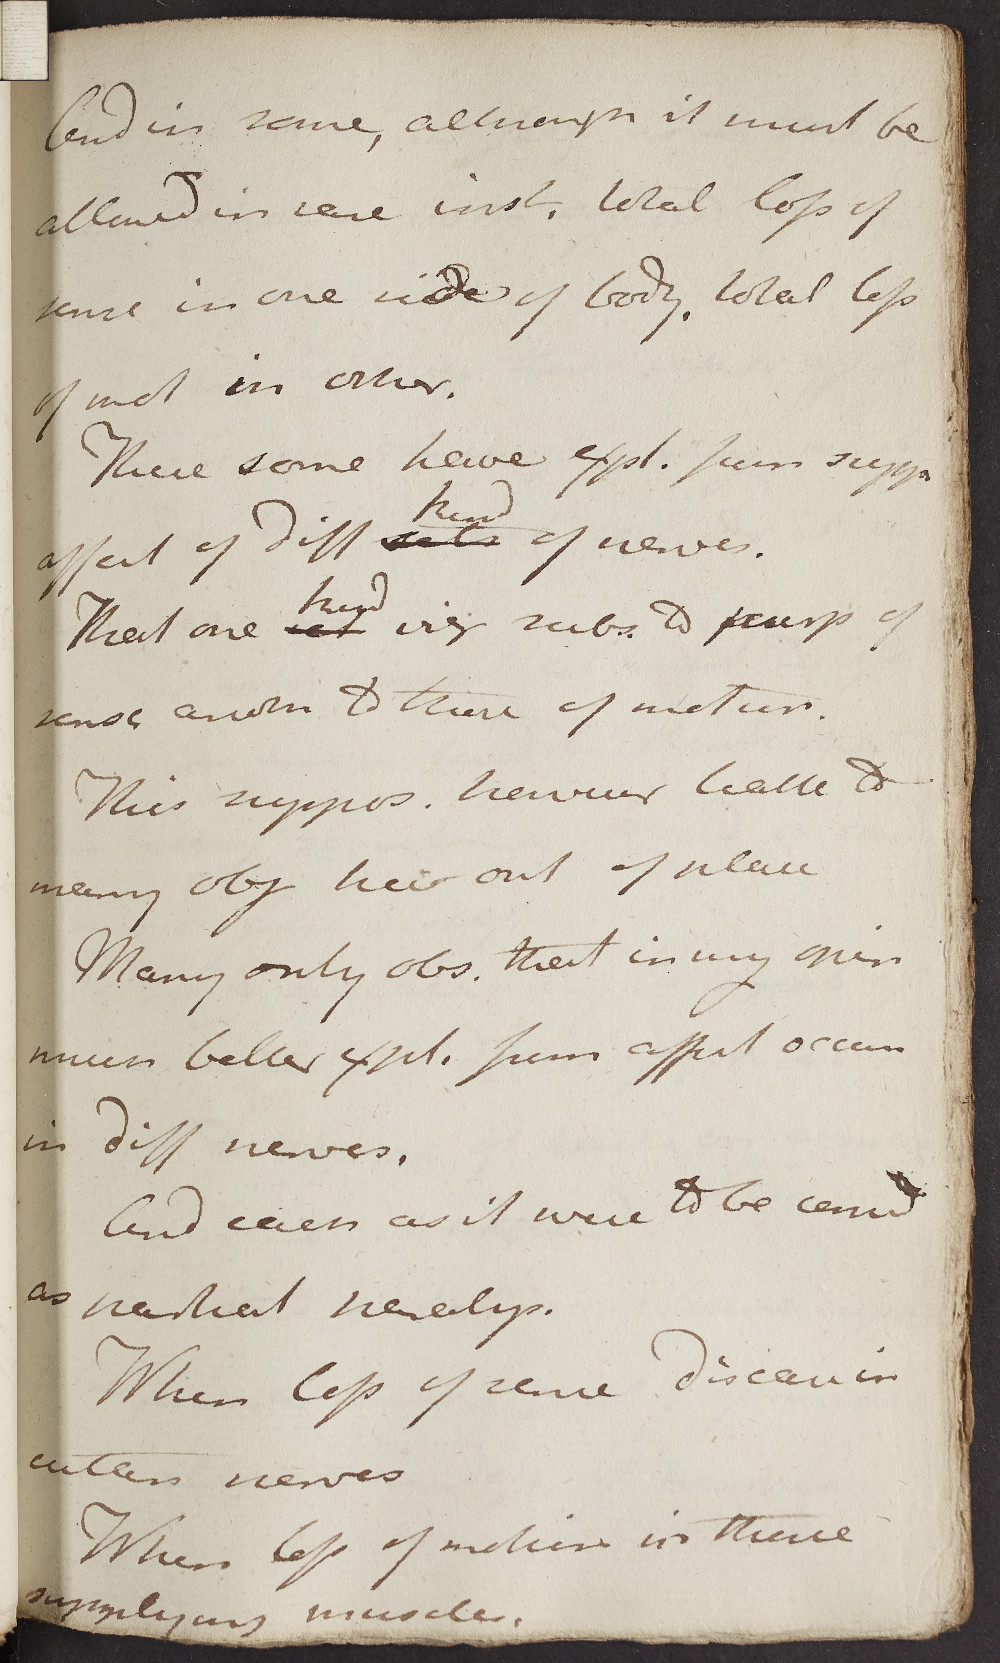 And in some, although it must be
allowd in rare inst. total loss of
sense in one side of body, total loss
of mot in other.
These some have expl. from supp
affect of diff sets kind of nerves.
That one set kind subs. to purp of
sense anoth to those of motion.
This suppos. however liable to
many obj here out of place
Many only obs. that in my opin
much better expl. from affect occur
in diff nerves.
And even as it were to be consd
as partial paralys.
When loss of sense disease in
cutan nerves
When loss of motion in those
supplying muscles.